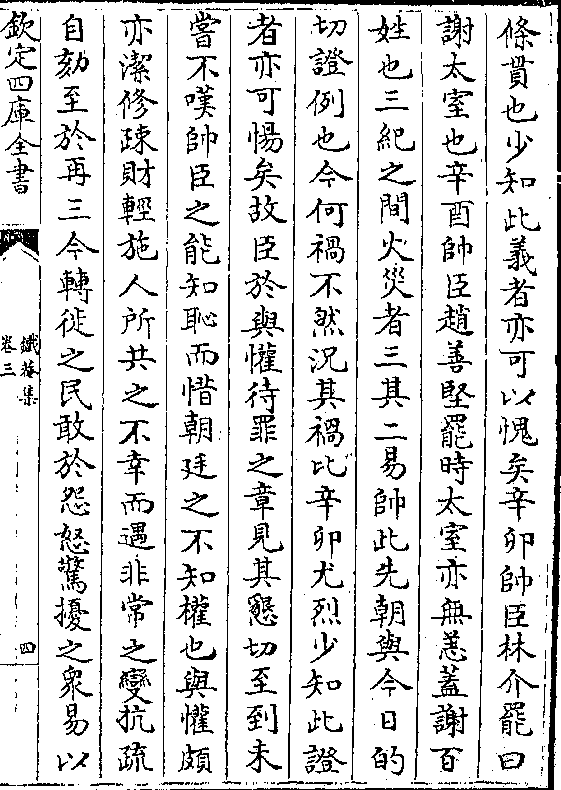 條貫也少知此義者亦可以愧矣辛卯帥臣林介罷曰
謝太室也辛酉帥臣趙善堅罷時太室亦無恙蓋謝百
姓也三紀之間火災者三其二易帥此先朝與今日的
切證例也今何禍不然況其禍比辛卯尤烈少知此證
者亦可惕矣故臣於與懽待罪之章見其懇切至到未
嘗不嘆帥臣之能知恥而惜朝廷之不知權也與懽頗
亦潔修疎財輕施人所共之不幸而遇非常之變抗疏
自劾至於再三今轉徙之民敢於怨怒驚擾之衆易以
欽定四庫全書
卷三
四